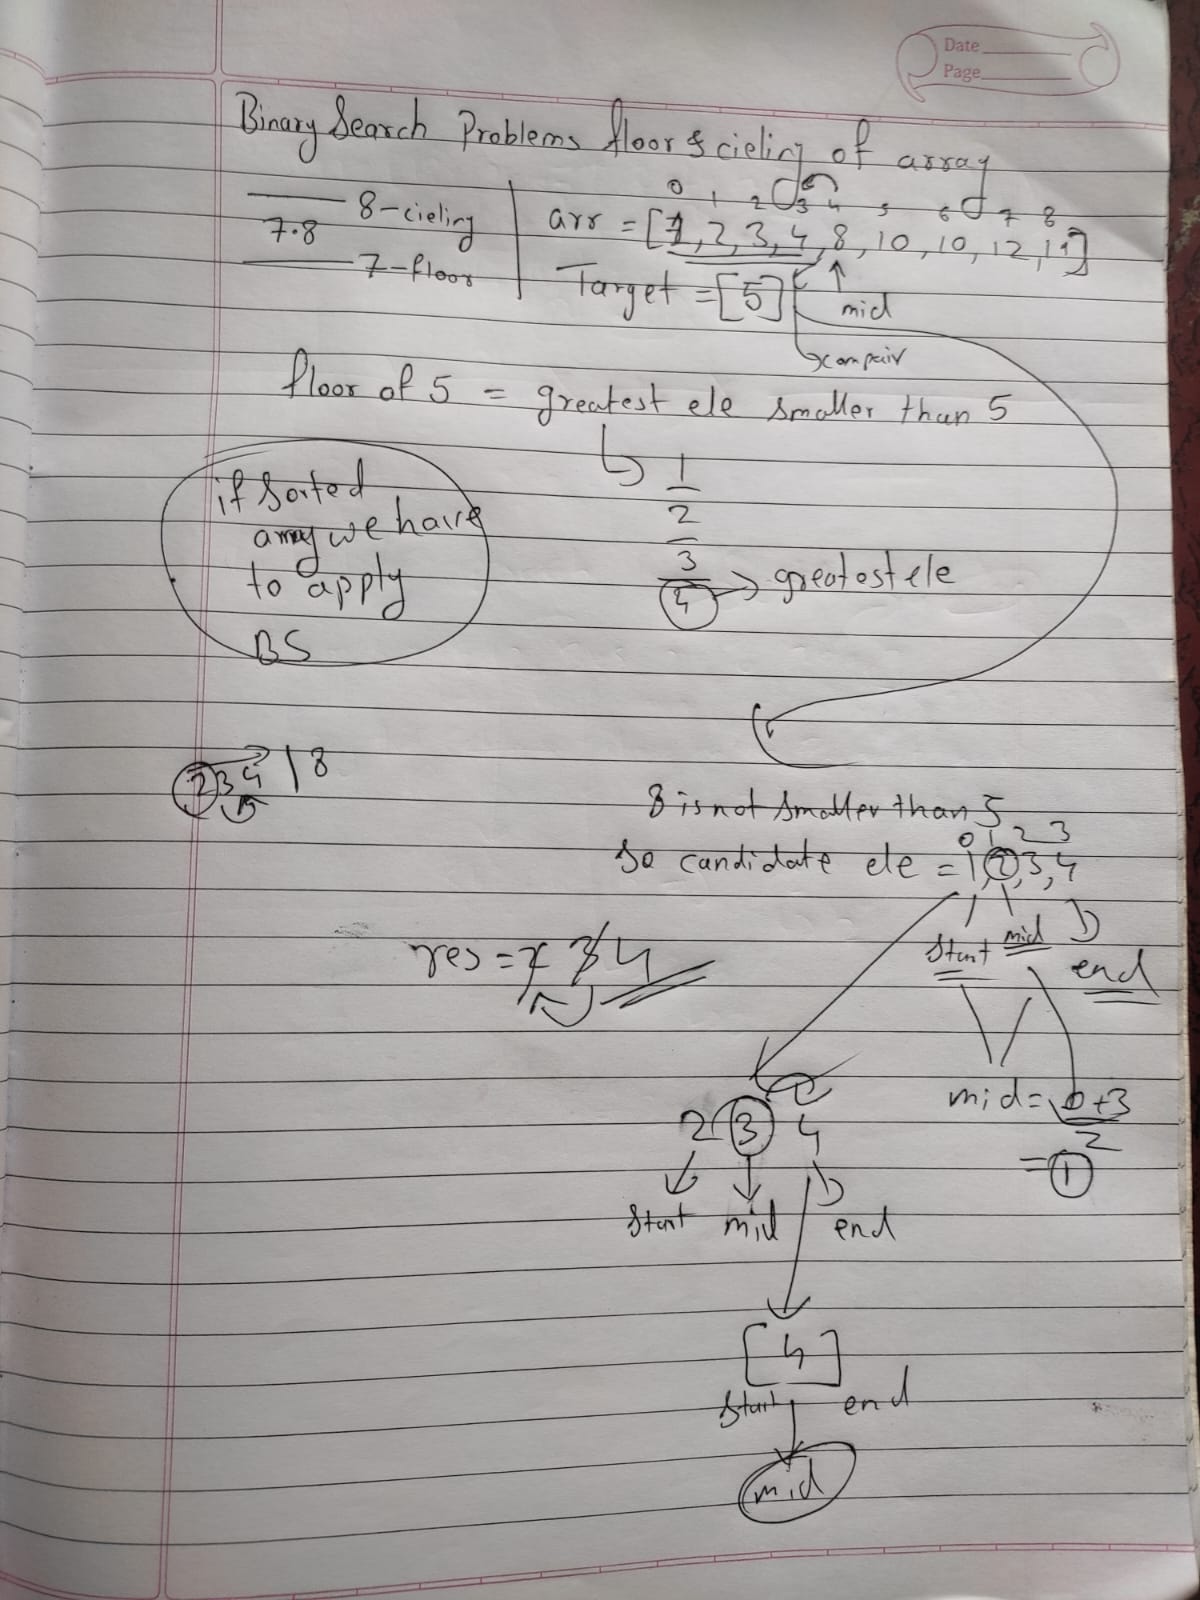 Date
Page
Binary Search Problems floor & cieling of array
8-cieling
7.8
7-floor
0 1 2 3 4 5 6 7 8
arr = [1, 2, 3, 4, 8, 10, 10, 12, 19]
Target = [5]
mid
compair
floor of 5 = greatest ele smaller than 5
1
2
3
4 → greatest ele
if Sorted
array we have
to apply
BS
2 3 4 | 8
8 is not smaller than 5
0 1 2 3
So candidate ele = 1, 2, 3, 4
start mid end
res = 2 3 4
mid = 0+3
2
= 1
2 3 4
start mid end
[4]
start end
mid